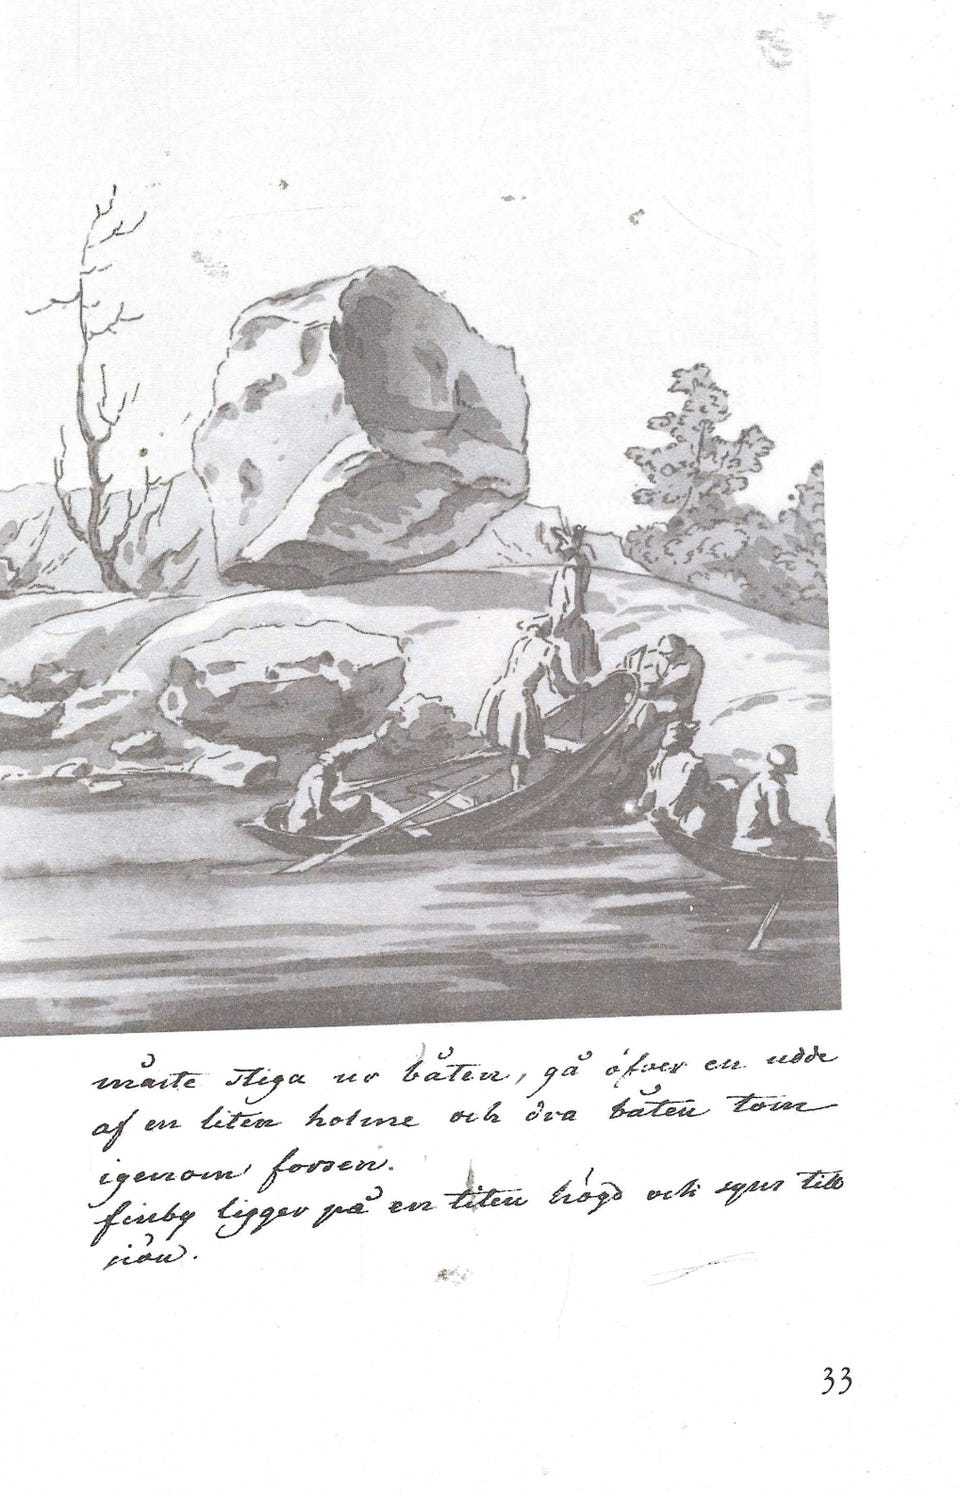 måste stiga ur båten, gå öfver en udde
af en liten holme och dra båten tom
igenom forsen.
finby ligger på en liten högd och syns till
sjön.
33